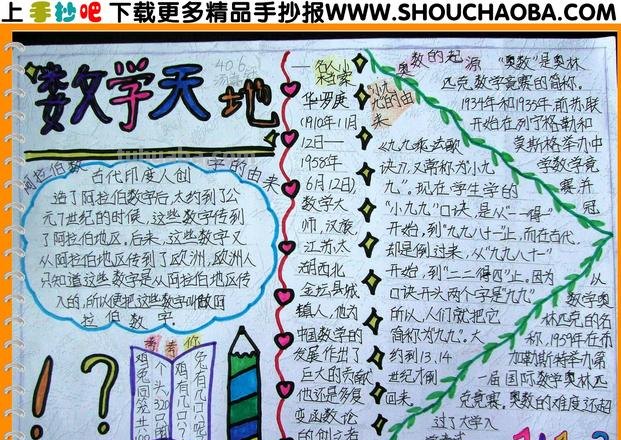 上手抄吧 下载更多精品手抄报WWW.SHOUCHAOBA.COM
数学天地
阿拉伯数字的由来
古代印度人创
造了阿拉伯数字后,大约到了公
元7世纪的时候,这些数字传到
了阿拉伯地区。后来,这些数字又
从阿拉伯地区传到了欧洲,欧洲人
只知道这些数字是从阿拉伯地区传
入的,所以便把这些数字叫做阿
拉伯数字。
考考你
名人小
档案
华罗庚
1910年11月
12日—
1958年
6月12日),
数学大
师,汉族,
江苏太
湖西北
金坛县城
镇人,他为
中国数学的
发展作出了
巨大的贡献
他还是多复
变函数论
的创立者
小九
九的由
来
《九九乘法歌
诀》,又常称为“小九
九”。现在学生学的
“小九九”口诀,是从“一一得一”
开始,到“九九八十一”止,而在古代,
却是倒过来,从“九九八十一”
开始,到“二二得四”止。因为
口诀开头两个字是“九九”,
所以,人们就把它
简称为“九九”。大
约到13、14
世纪才倒
回来。
奥数的起源
“奥数”是奥林
匹克数学竞赛的简称。
1934年和1935年前苏联
开始在列宁格勒和
莫斯格举办中
学数学竞
赛,并
冠
以
数学奥
林匹克的名
称,1959年在布
加勒斯特举办第
一届国际数学奥林匹
克竞赛。奥数的难度还超
过了大学入